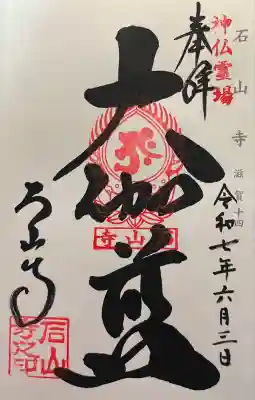 石山寺 滋賀十四
神仏霊場
奉拝
令和七年六月三日
大伽藍
石山寺
石山寺
石山寺印